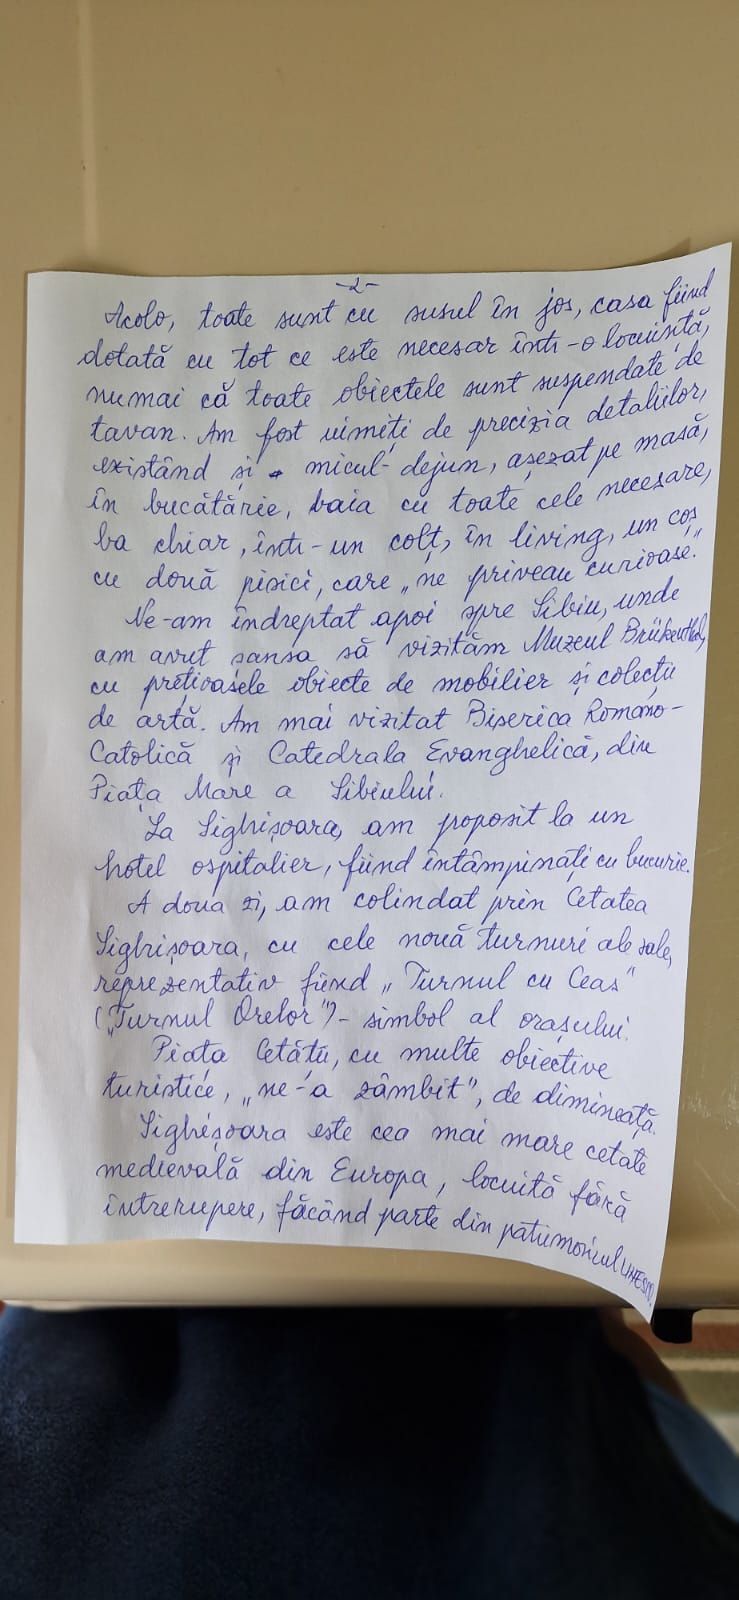 -2-
Acolo, toate sunt cu susul în jos, casa fiind
dotată cu tot ce este necesar într-o locuință,
numai că toate obiectele sunt suspendate de
tavan. Am fost uimiți de precizia detaliilor,
existând și micul-dejun, așezat pe masă,
în bucătărie, baia cu toate cele necesare,
ba chiar, într-un colț, în living, un coș
cu două pisici, care „ne priveau curioase."
Ne-am îndreptat apoi spre Sibiu, unde
am avut șansa să vizităm Muzeul Brükenthal,
cu prețioasele obiecte de mobilier și colecții
de artă. Am mai vizitat Biserica Romano-
Catolică și Catedrala Evanghelică, din
Piața Mare a Sibiului.
La Sighișoara, am poposit la un
hotel ospitalier, fiind întâmpinați cu bucurie.
A doua zi, am colindat prin Cetatea
Sighișoara, cu cele nouă turnuri ale sale,
reprezentativ fiind „Turnul cu Ceas"
(„Turnul Orelor") - simbol al orașului.
Piața Cetății, cu multe obiective
turistice, „ne-a zâmbit", de dimineață.
Sighișoara este cea mai mare cetate
medievală din Europa, locuită fără
întrerupere, făcând parte din patrimoniul UNESCO.